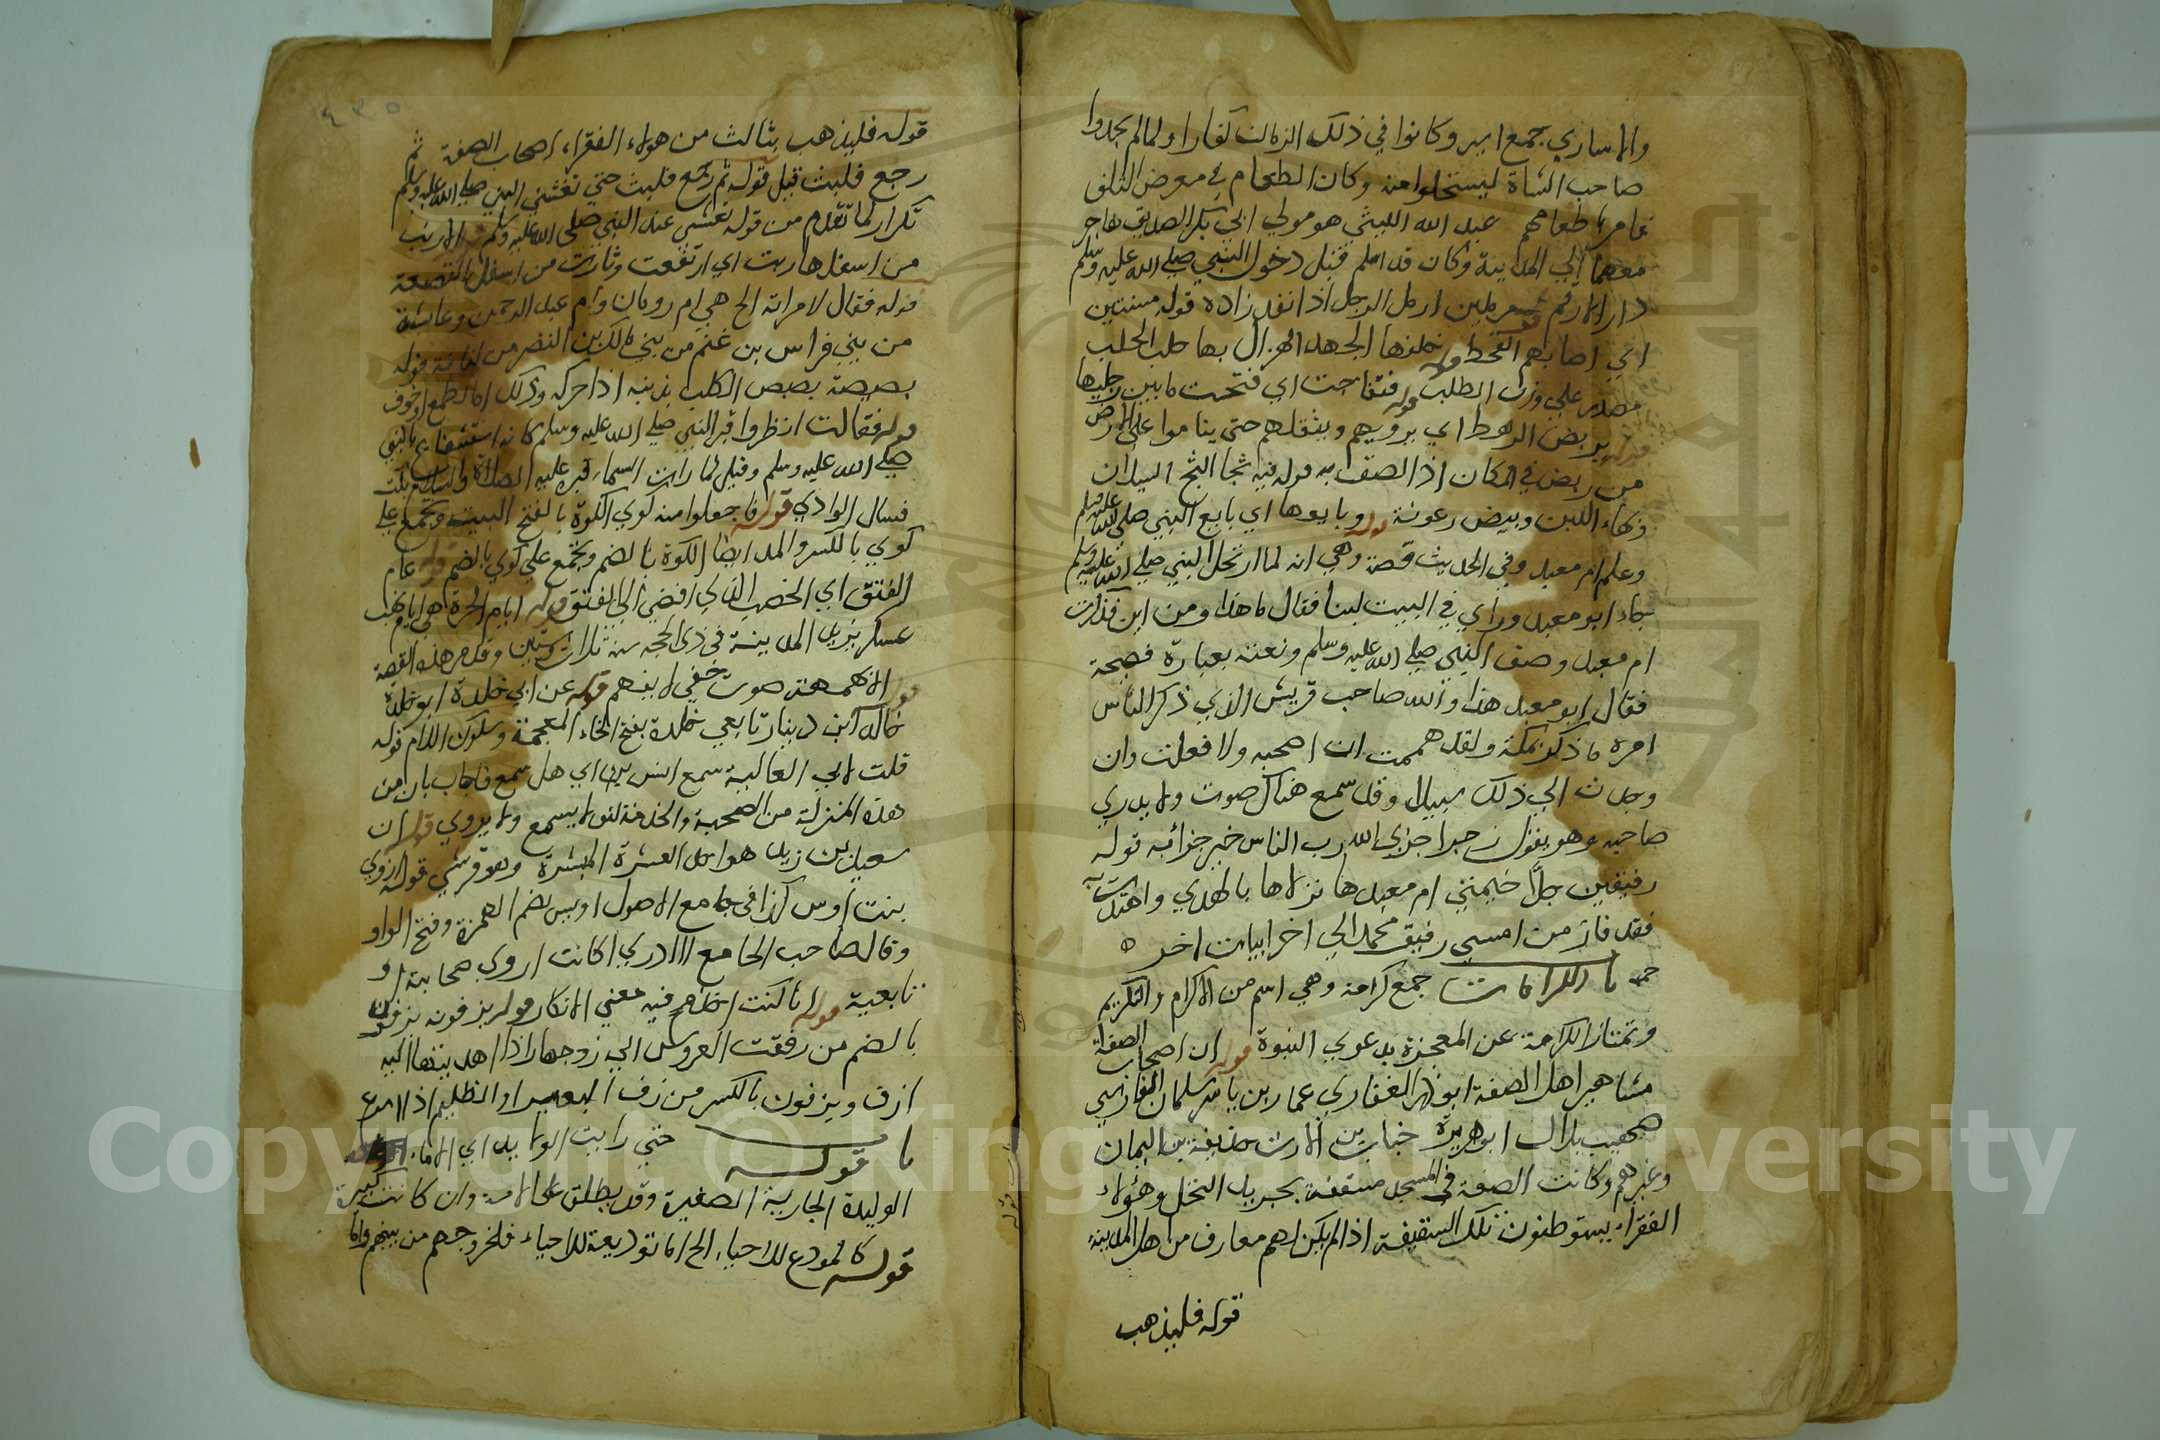 والاساري جمع اسير وكانوا في ذلك الزمان كفارا ولما لم يجدوا
صاحب الشاة ليستحلوا منه وكان الطعام في معرض التلف
فامر باطعامهم عبد الله الليثي هو مولي ابي بكر الصديق هاجر
معهما الي المدينة وكان قد اسلم قبل دخول النبي صلي الله عليه وسلم
دار الارقم مرملين ارمل الرجل اذا نفد زاده قوله مسنتين
اي اصابهم القحط قوله خلفها الجهد الهزال بها حلب الحلب
مصدر علي وزن الطلب قوله فتفاجت اي فتحت ما بين رجليها
قوله يربض الرهط اي يرويهم ويثقلهم حتي يناموا علي الارض
من ربض في المكان اذا لصق به قوله فيه ثجا الثج السيلان
وبهاء اللبن وبيض رغوته قوله وبايعها اي بايع النبي صلي الله عليه وسلم
وعلم ام معبد وفي الحديث قصة وهي انه لما ارتحل النبي صلي الله عليه وسلم
جاء ابو معبد وراي في البيت لبنا فقال ما هذا ومن اين فذكرت
ام معبد وصف النبي صلي الله عليه وسلم ونعته بعبارة فصيحة
فقال ابو معبد هذا والله صاحب قريش الذي ذكر الناس
امره ما ذكر بمكة ولقد هممت ان اصحبه ولا فعلت وان
وجدت الي ذلك سبيلا وقد سمع هناك صوت ولا يدري
صاحبه وهو يقول زجرا جزي الله رب الناس خير جزائه قوله
رفيقين حلا خيمتي ام معبد هما نزلاها بالهدي واهتدت به
فقد فاز من امسي رفيق محمد الي اخر ابيات اخر ه
باب الكرامات جمع كرامة وهي اسم من الاكرام والتكريم
وتمتاز الكرامة عن المعجزة بدعوي النبوة قوله ان اصحاب الصفة
مشاهير اهل الصفة ابو ذر الغفاري عمار بن ياسر سلمان الفارسي
صهيب بلال ابو هريرة خباب بن الارت حذيفة بن اليمان
وغيرهم وكانت الصفة في المسجد مسقفة بجريد النخل وهؤلاء
الفقراء يستوطنون تلك السقيفة اذ لم يكن لهم معارف من اهل المدينة
قوله فليذهب
قوله فليذهب بثالث من هولاء الفقراء اصحاب الصفة ثم
رجع فلبث قبل قوله ثم رجع فلبث حتي تعشي النبي صلي الله عليه وسلم
تكرار لما تقدم من قوله تعشي عند النبي صلي الله عليه وسلم الا ربت
من اسفلها ربت اي ارتفعت وثارت من اسفل القصعة
قوله فقال لامراته الخ هي ام رومان وام عبد الرحمن وعائشة
من بني فراس بن غنم من بني مالك بن النضر من كنانة قوله
بصبصة بصبص الكلب بذنبه اذا حركه وذلك اما لطمع او خوف
قوله فقالت انظروا قبر النبي صلي الله عليه وسلم كانه استشفاع بالنبي
صلي الله عليه وسلم وقيل لما رات السماء قبره عليه الصلاة والسلام بكت
فسال الوادي قوله فاجعلوا منه كوي الكوة بالفتح البيت ويجمع علي
كوي بالكسر والمد ايضا الكوة بالضم ويجمع علي كوي بالضم قوله عام
الفتق اي الخصب الذي افضي الي الفتق قوله ايام الحرة هي ايام نهب
عسكر يزيد المدينة في ذي الحجة سنة ثلاث وستين وقد مر هذه القصة
قوله الا بهمهمة صوت خفي لا يفهم قوله عن ابي خلدة ابو خلدة
خالد بن دينار تابعي خلدة بفتح الخاء المعجمة وسكون اللام قوله
قلت لابي العالية سمع انس يريد اي هل سمع فاجاب بان من
هذه المنزلة من الصحبة والخدمة لنبي لا يسمع ولا يروي قوله ان
سعيد بن زيد هو احد العشرة المبشرة وهو قرشي قوله اروي
بنت اوس كذا في جامع الاصول اويس بضم الهمزة وفتح الواو
وقال صاحب الجامع لا ادري اكانت اروي صحابية او
تابعية قوله انا كنت اخذ فيه معني الانكار قوله يزفونه يزفون
بالضم من زففت العروس الي زوجها اذا اهديتها اليه
ازف ويزفون بالكسر من زف البعير او الظليم اذا اسرع
باب قوله حتي رايت الولايد اي الاماء
الوليدة الجارية الصغيرة وقد يطلق علي الامة وان كانت كبيرة
قوله كالمودع للاحياء الخ اما توديعه للاحياء فلخروجهم من بينهم واما